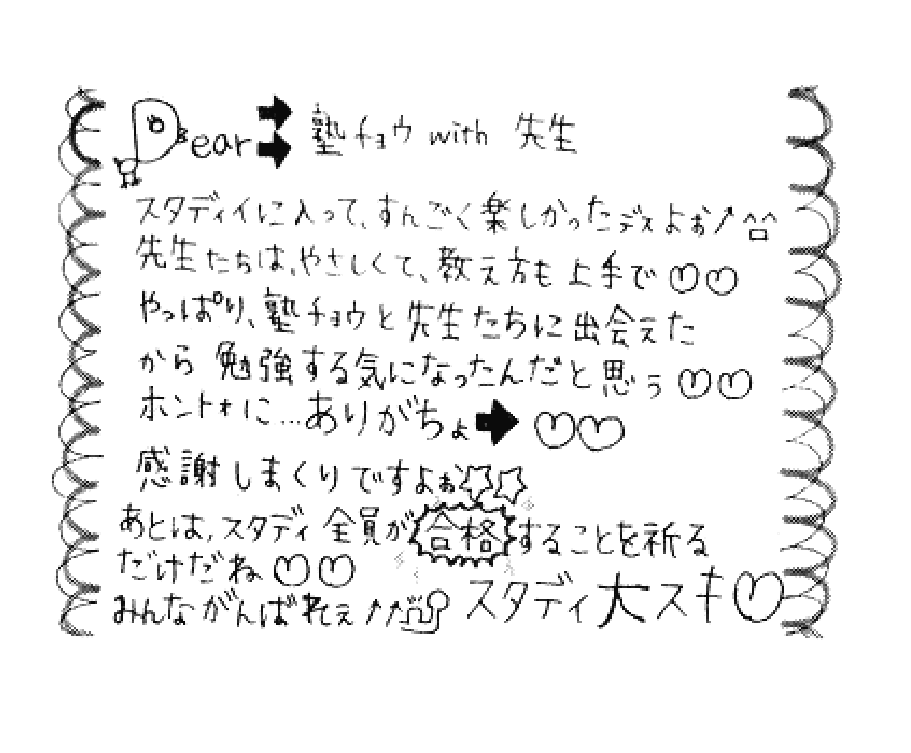 Dear➡ 塾チョウ with 先生
スタディイに入って、すんごく楽しかったデスよぉ!^□^
先生たちは、やさしくて、教え方も上手で♡♡
やっぱり、塾チョウと先生たちに出会えた
から 勉強する気になったんだと思う♡♡
ホントォに…ありがちょ➡♡♡
感謝しまくりですよぉ☆☆
あとは、スタディ全員が合格することを祈る
だけだね♡♡
みんながんばれぇ!! スタディ大スキ♡